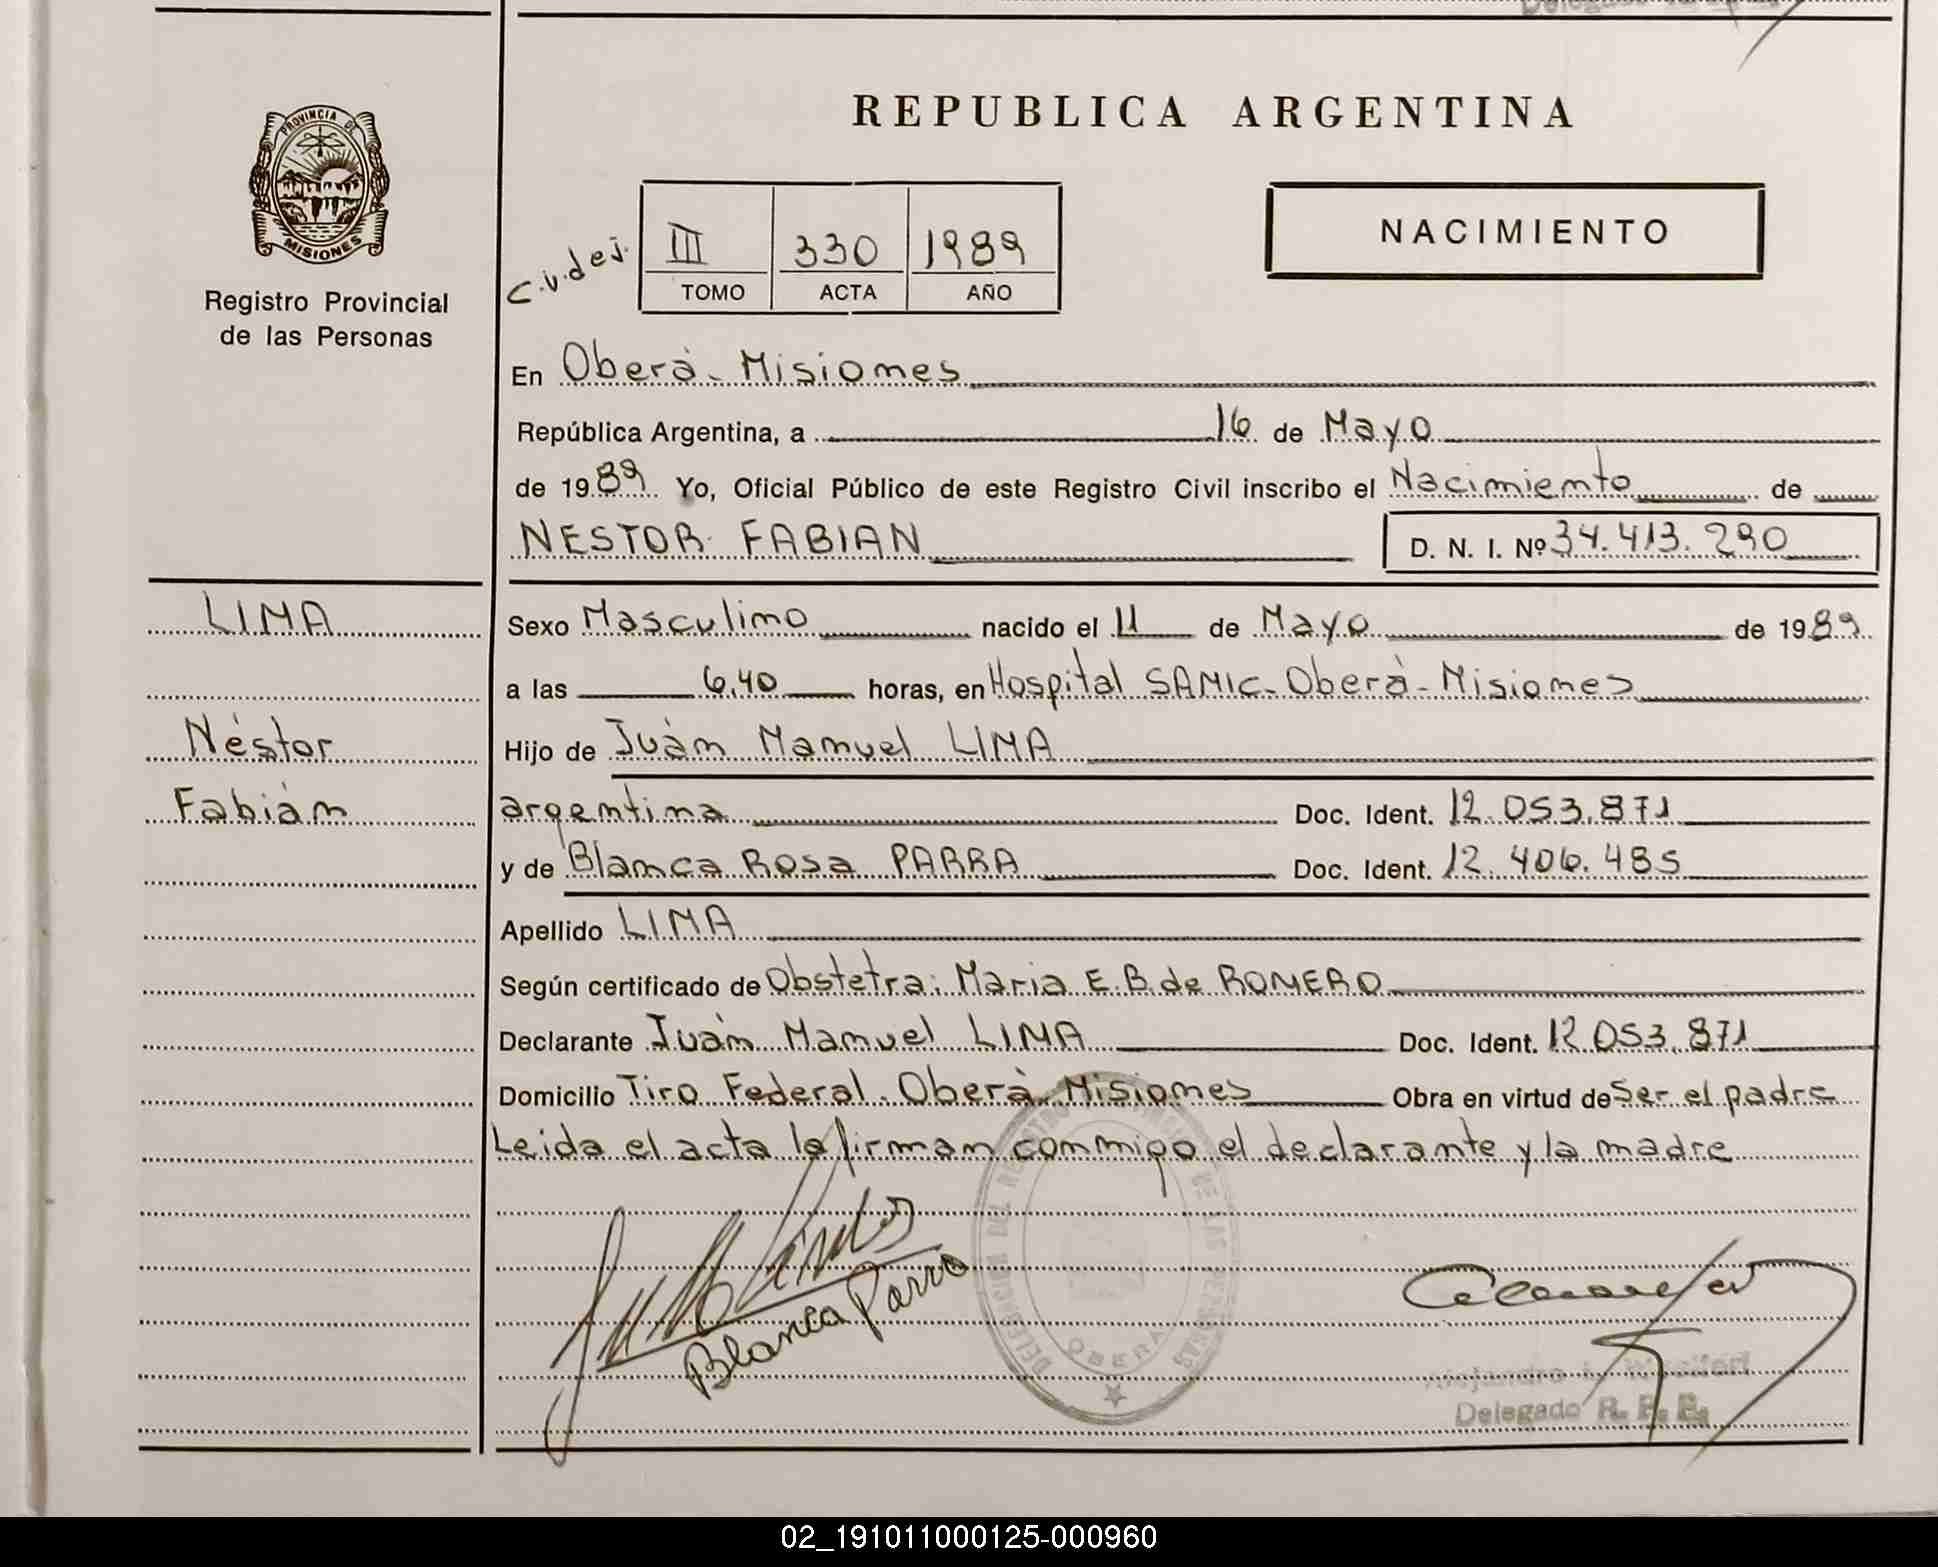 REPUBLICA ARGENTINA
PROVINCIA DE
MISIONES
Registro Provincial
de las Personas
C.V. de j.
III 330 1989
TOMO ACTA AÑO
NACIMIENTO
En Oberà - Misiones
República Argentina, a 16 de Mayo
de 1989 Yo, Oficial Público de este Registro Civil inscribo el Nacimiento de
NESTOR FABIAN D. N. I. Nº 34.413.290
LIMA
Néstor
Fabián
Sexo Masculino nacido el 11 de Mayo de 1989
a las 6,40 horas, en Hospital SAMIC - Oberà - Misiones
Hijo de Juàn Manuel LIMA
argentina Doc. Ident. 12.053.871
y de Blanca Rosa PARRA Doc. Ident. 12.406.485
Apellido LIMA
Según certificado de Obstetra: Maria E.B. de ROMERO
Declarante Juàn Manuel LIMA Doc. Ident. 12.053.871
Domicilio Tiro Federal. Oberà Misiones Obra en virtud de Ser el padre
Leida el acta la firman conmigo el declarante y la madre
Blanca Parra
DELEGACION DEL REGISTRO PROVINCIAL DE LAS PERSONAS
OBERA
Alejandro
Delegado R. P. P.
02_191011000125-000960